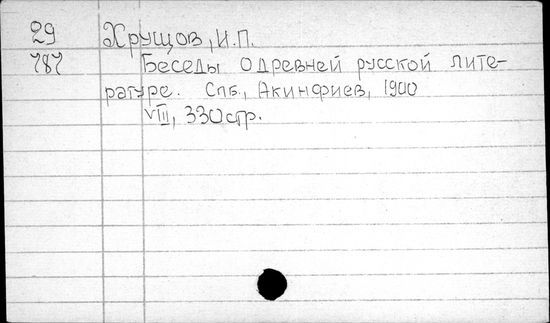 29 Хрущов, И.П.
787 Беседы о древней русской лите-
ратуре. Спб., Акинфиев, 1900
VIII, 330 стр.